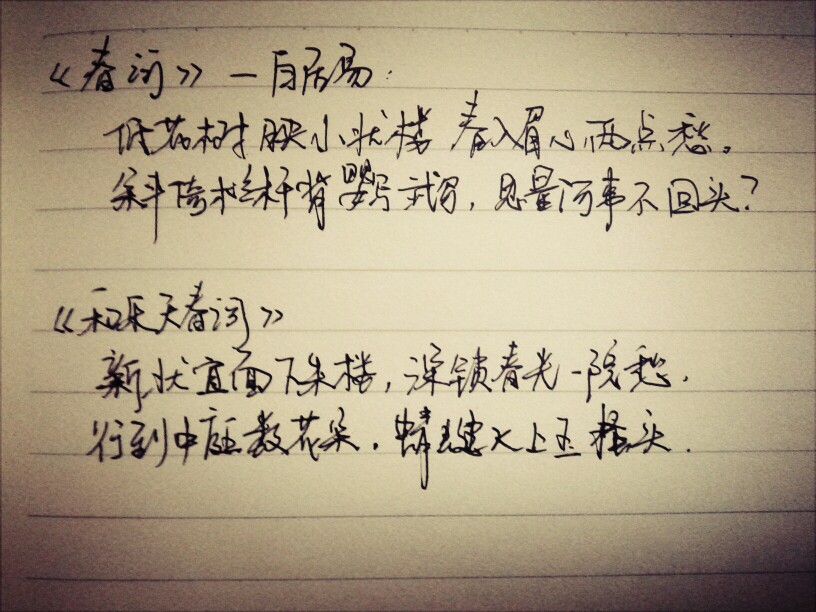 《春词》—白居易:
低花树映小状楼 春入眉心两点愁。
斜倚栏杆背鹦武鸟,思量何事不回头?
《和乐天春词》
新状宜面下朱楼,深锁春光一院愁.
行到中庭数花朵.蜻蜓飞上玉搔头.